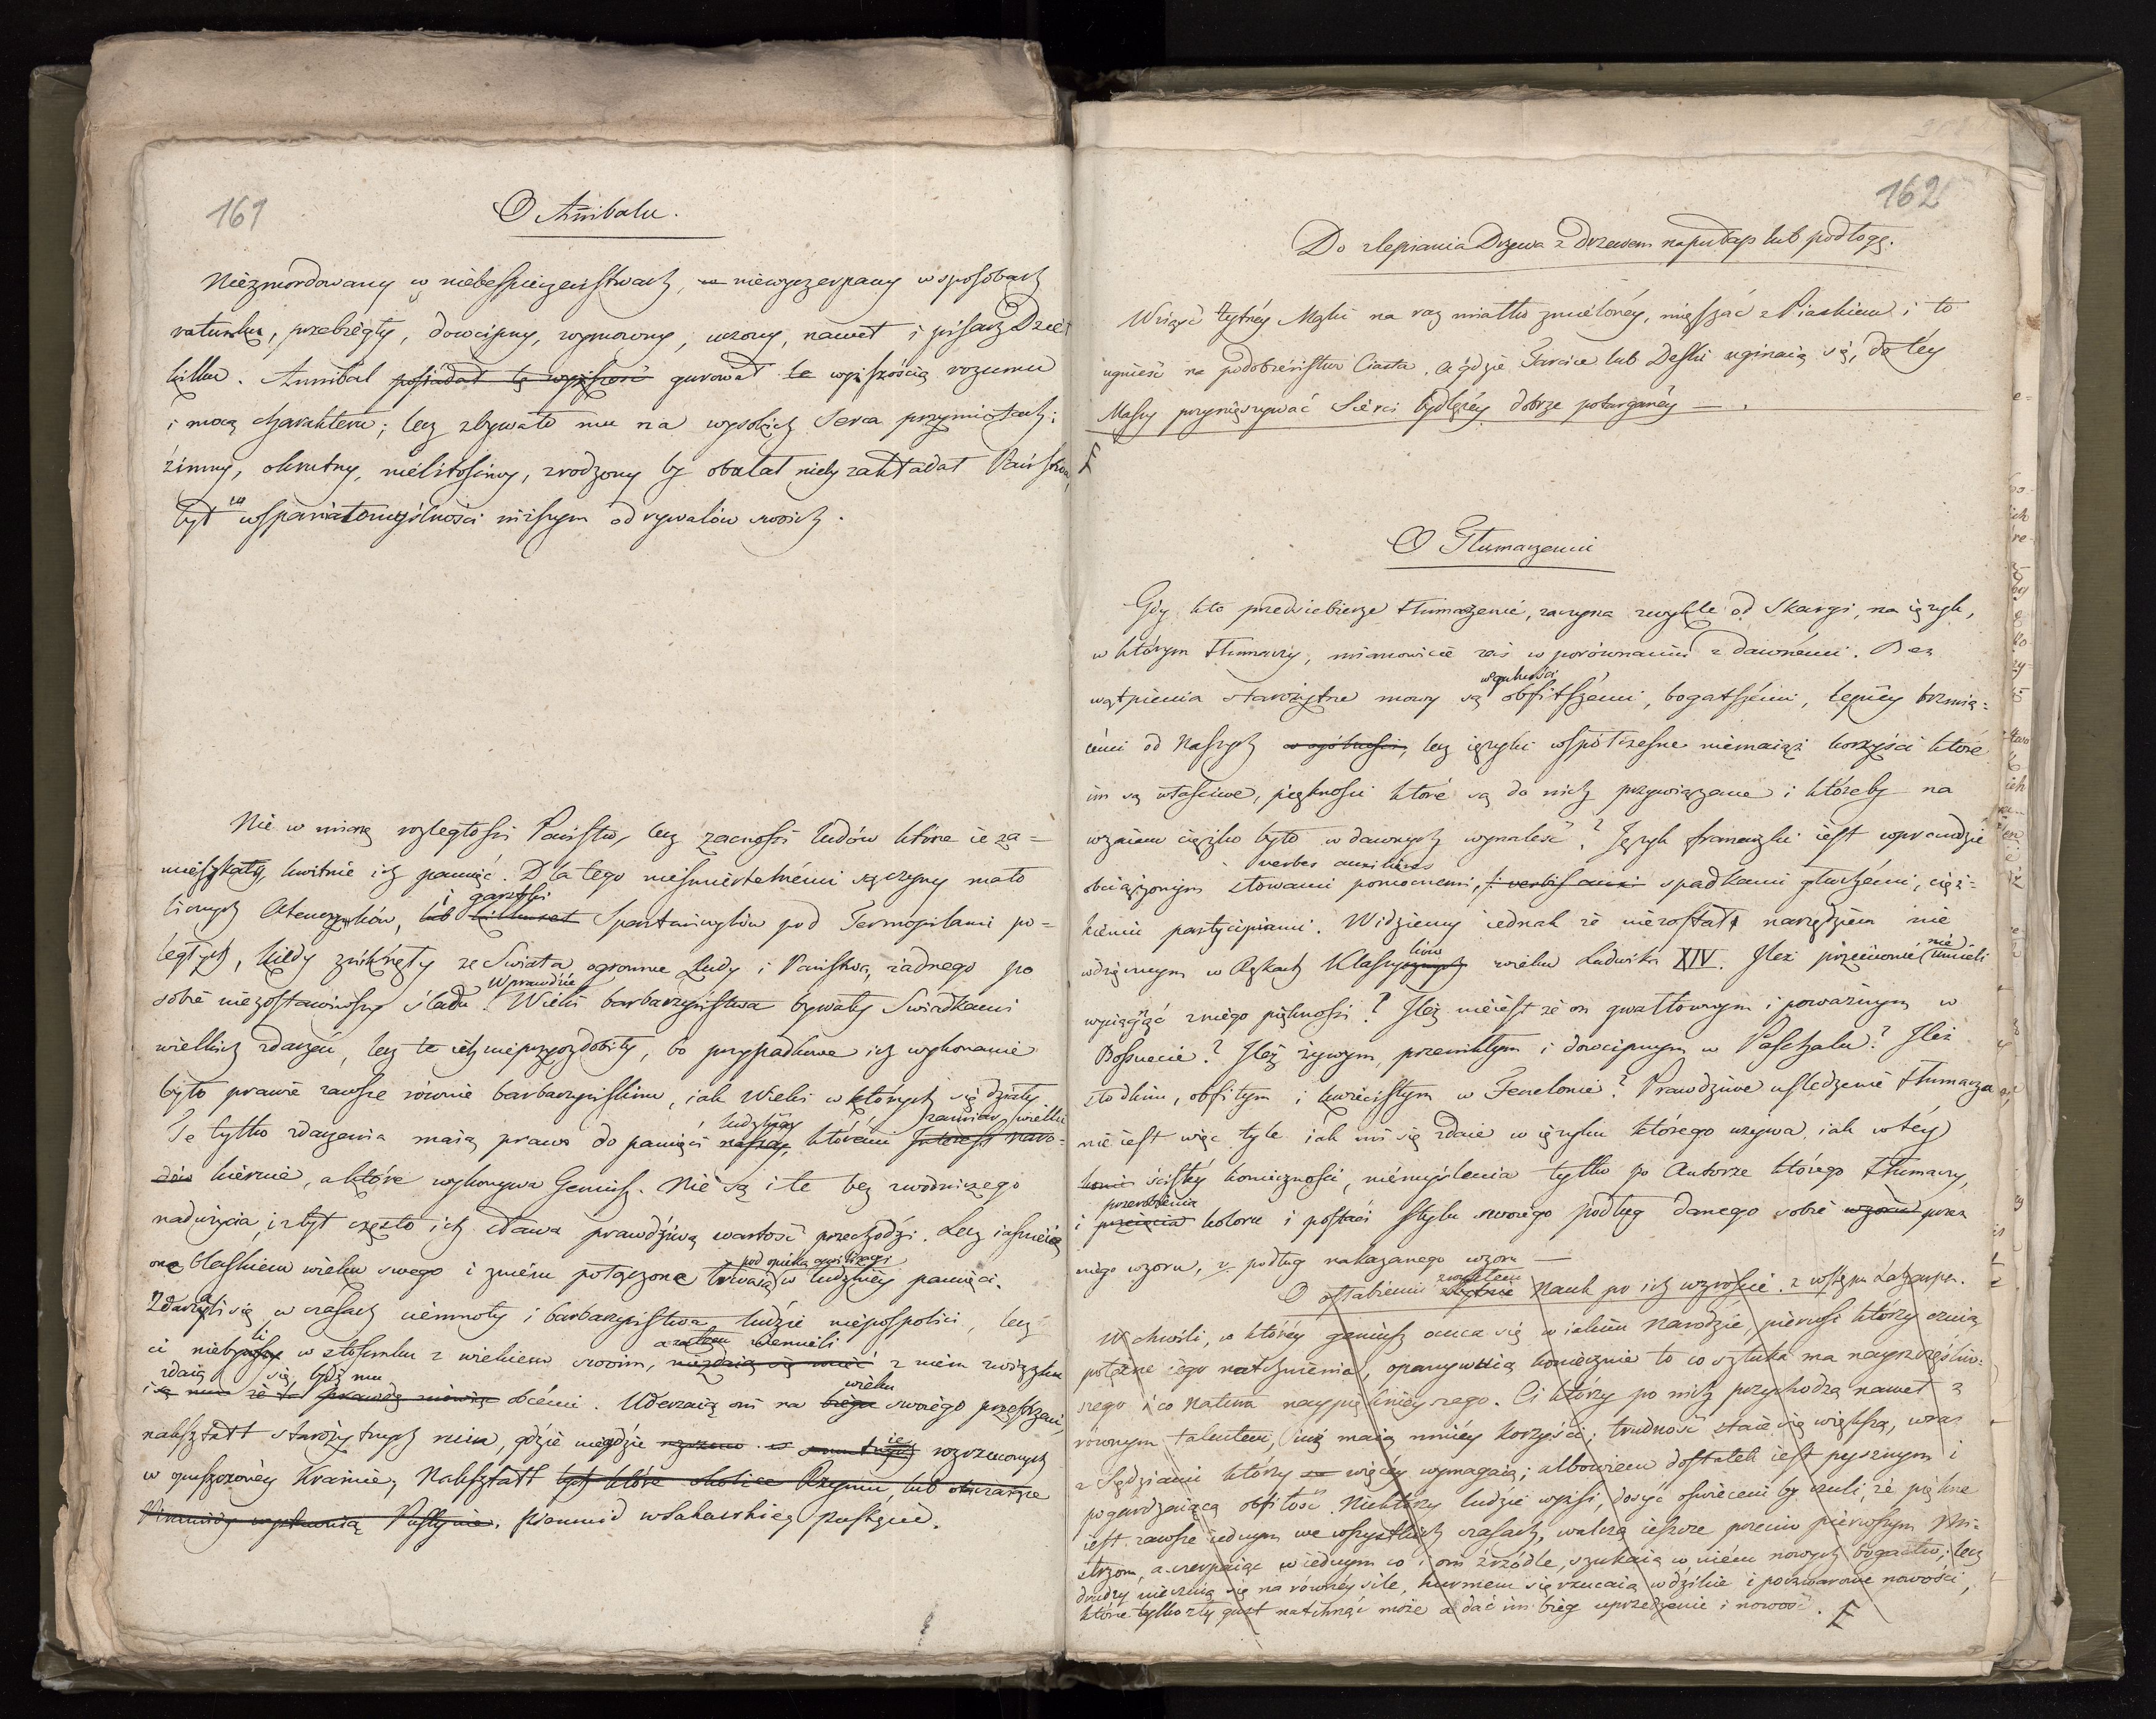 161
O Annibalu.
Niezmordowany w niebespieczeństwach, niewyczerpany w sposobach
ratunku, przebiegły, dowcipny, wymowny, uczony, nawet i pisarz Dzieł
kilku. Annibal posiadał tę wyższość gurował te wyższością rozumu
i mocą charakteru; lecz zbywało mu na wysokich serca przymiotach;
zimny, okrutny, nielitościwy, zrodzony by obalał nieby zakładał Państwa,
był w wspaniałomyślności niższym od rywalów swoich.
Nie w miarę rozległości Państw, lecz zacności ludów które ie za=
mieszkały, kwitnie ich pamięć. Dla tego nieśmiertelnémi są czyny mało
i garstki
licznych Ateńczyków, lub kilkuset Spartańczyków pod Termopilami po=
ległych, kiedy zniknęły ze Swiata ogromne Ludy i Państwa, żadnego po
Wprawdzie
sobie niezostawiwszy śladu. Wieki barbarzyństwa bywały Swiadkami
wielkich zdarzeń, lecz te ich nieprzyozdobiły, bo przypadkowe ich wykonanie
było prawie zawsze równie barbarzyńskim, iak Wieki w których się działy.
ludzkiéy zamiar wielki
Te tylko zdarzenia maią prawo do pamięci naszéy, którémi Interess naro=
dów kieruie, a które wykonywa Geniusz. Nie są i te bez zwodniczego
nadużycia, i zbyt często ich sława prawdziwą wartość przechodzi. Lecz iaśnieią
pod opieką
one blaskiem wieku swego i z niem połączone trwaią w ludzkiéy pamięci.
Zdarzali się w czasach ciemnoty i barbarzyństwa ludzie niepospolici, lecz
ci niebyli w stosunku z wiekiem swoim, niezdaią się mieć z niem związku
zdaią się, bydź mu wieku
obcémi. Uderzaią oni na biegu swoiego przestrzeni,
nakształt starożytnych ruin, gdzie niegdzie rozrzuconych
w opuszczonéy Krainie; Nakształt tych które okolice Rzymu, lub
Piramidy Pustynie. piramid w Saharskiéy pustyni.
162
Do zlepiania Drzewa z Drzewem na pułap lub podłogę.
Wziąść żytnéy Mąki na raz miałko zmiełonéy, mięszać z Piaskiem i to
ugnieść na podobieństwo Ciasta, a gdzie Tarcice lub Deski uginaią się, do téy
Massy przymięszywać Sierci bydlęcéy dobrze potarganéy —.
O Tłumaczeniu
Gdy kto przedsiebierze tłumaczenie, zaczyna zwykle od skargi, na ięzyk,
w którym tłumaczy, mianowicie zaś w porównaniu z dawnémi. Bez
w ogulności
wątpienia starożytne mowy są obfitszémi, bogatszémi, lepiéy brzmią=
cémi od Naszych w ogólności, lecz ięzyki współczesne niemaiąż korzyści które
im są właściwe, piękności które są do nich przywiązane i któreby na
wzaiem ciężko było w dawnych wynaleść? Ięzyk francuzki iest wprawdzie
verbes auxiliaires
obciążonym słowami pomocnemi, spadkami głuchémi, cięż=
kiémi partycipiami. Widziemy iednak że niezostał narzędziem nie
ków nie
wdzięcznym w Rękach Klassycznych wieku Ludwika XIV. Ileż przeciwnie umieli
wyciągnąć z niego piękności? Ileż nieiest że on gwałtownym i poważnym w
Bossuecie? Ileż żywym, przenikłym i dowcipnym w Paschalu? Ileż
słodkim, obfitym i kwiecistym w Fenelonie? Prawdziwe uśledzenie tłumacza
nie iest więc tyle iak mi się zdaie w ięzyku którego używa, iak w téy
koniec ścisłéy konieczności, niémyślenia tylko po Autorze którego tłumaczy,
przerobienia
i przeięcia koloru i postaci stylu swoiego podług danego sobie wzoru przez
niégo wzoru, v. podług nakazanego wzoru —
O osłabieniu Nauk po ich wzroście. z wstępu Laharpa.
W chwili, w któréy geniusz ocuca się w iakim Narodzie, pierwsi którzy czuią
potężne iego natchnienia, opanywuią koniecznie to co sztuka ma nayszczęśliw-
szego i co Natura naypięknieyszego. Ci którzy po nich przychodzą nawet z
równym talentem, iuż maią mniéy korzyści; trudność staie się większą, wraz
z Sędziami którzy więcéy wymagaią; albowiem dostatek iest pysznym i
pogardzaiącą obfitość. Niektórzy ludzie wyżsi, dosyć oświeceni by czuli, że piękne
iest zawsze iednym we wszystkich czasach, walczą ieszcze przeciw pierwszym Mi-
strzom, a czerpaiąc w iednym co i oni źrzódle, szukaią w niém nowych bogactw; lecz
drudzy nieczuią się na równéy sile, hurmem się rzucaią w dzikie i poczwarne nowości,
które tylko zły gust natchnąć może a dać im bieg uprzedzenie i nowość.